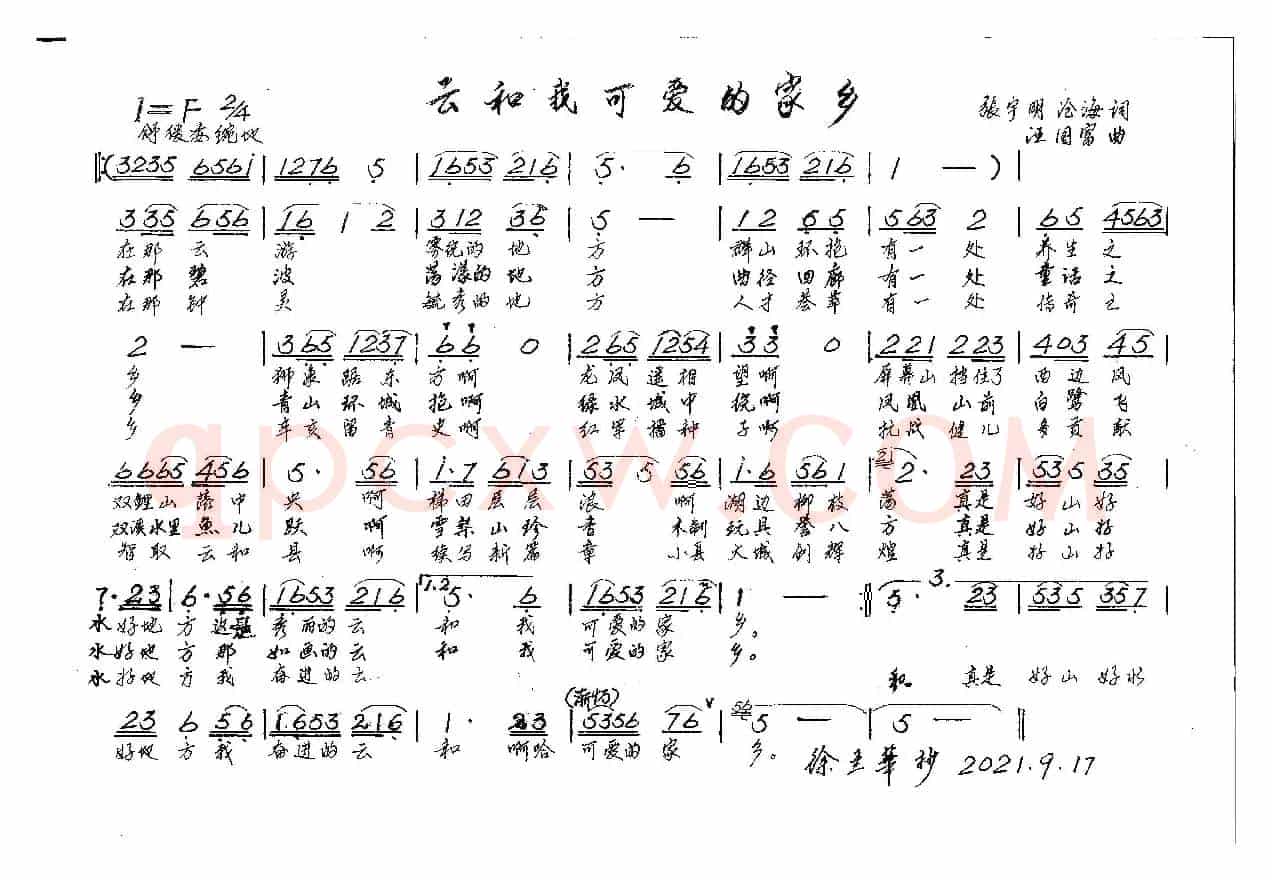 云和我可爱的家乡
1=F 2/4
张宇明 沧海词
舒缓委婉地
汪国富曲
(3235 6561 | 1276 5 | 1653 216 | 5· 6 | 1653 216 | 1 — )
335 656 | 16 1 2 | 312 36 | 5 — | 12 65 | 563 2 | 65 4563 |
在那云 游 雾绕的地 方 群山环抱 有一处 养生之
在那碧 波 荡漾的地 方 曲径回廊 有一处 童话之
在那钟 灵 毓秀的地 方 人才荟萃 有一处 传奇之
2 — | 365 1237 | 66 0 | 265 1254 | 33 0 | 221 223 | 403 45 |
乡 狮象踞东 方啊 龙凤遥相 望啊 屏幕山挡住了 西边风
乡 青山环城 抱啊 绿水城中 绕啊 凤凰山前 白鹭飞
乡 辛亥留青 史啊 红军播种 子啊 抗战健儿 多贡献
6665 456 | 5· 56 | 1·7 613 | 53 5 56 | 1·6 561 | 2· 23 | 535 35 |
双鲤山落中 央 啊 梯田层层 浪 啊 湖边柳枝 荡 真是 好山好
双溪水里鱼儿 跃 啊 雪梨山珍 香 木制 玩具誉八 方 真是 好山好
智取云和 县 啊 续写新篇 章 小县大城创辉 煌 真是 好山好
1.2
3.
7· 23 | 6· 56 | 1653 216 | 5· 6 | 1653 216 | 1 — :| 5· 23 | 535 357 |
水好地方这是 秀丽的云 和 我 可爱的家 乡。
水好地方那 如画的云 和 我 可爱的家 乡。
水好地方我 奋进的云 和 真是 好山好水
(渐慢)
23 6 56 | 1·653 216 | 1· 23 | 5356 76 | 5 — | 5 — ‖
好地方我 奋进的云 和 啊哈 可爱的家 乡。
徐 華抄 2021.9.17
qpcxw.com